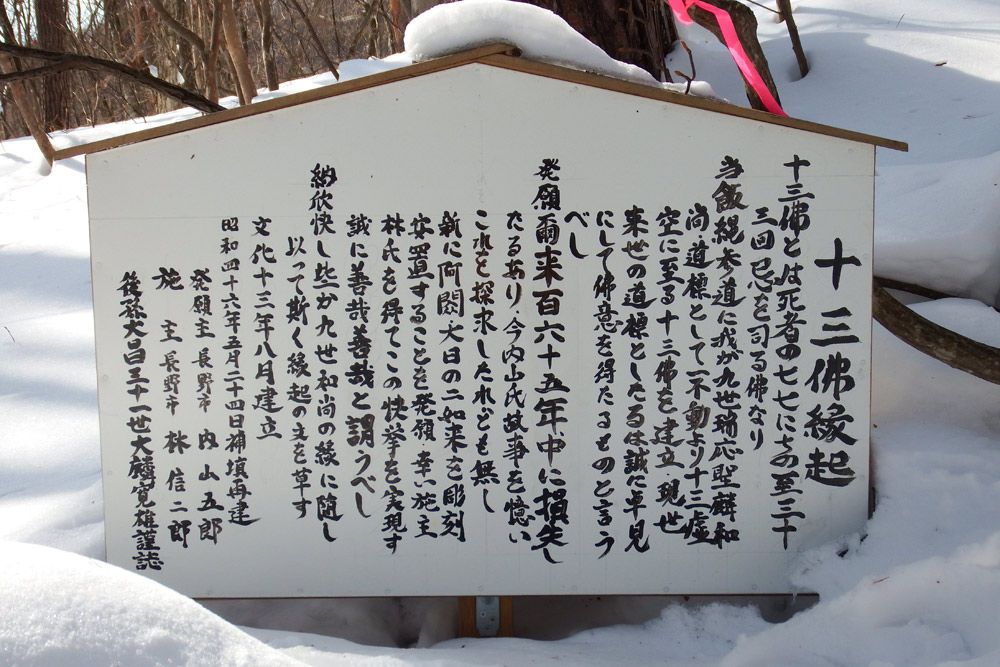 十三佛縁起
十三佛とは死者の七七にちの至三十
三回忌を司る佛なり
当飯縄参道に我が九世瑞応聖麟和
尚道標として一不動より十三虚
空に至る十三佛を建立 現世
来世の道標としたるは誠に卓見
にして佛意を得たるものと言う
べし
発願爾来百六十五年中に損失し
たるあり、今内山氏故事を憶い
これを探求したれども無し
新に阿閦大日の二如来を彫刻
安置することを発願 幸い施主
林氏を得てこの快挙を実現す
誠に善哉善哉と謂うべし
納欣快し些か九世和尚の縁に随し
以って斯く縁起の文を草す
文化十三年八月建立
昭和四十六年五月二十四日補填再建
発願主 長野市 内山五郎
施主 長野市 林信二郎
後裔大昌三十一世大麟寛雄謹誌